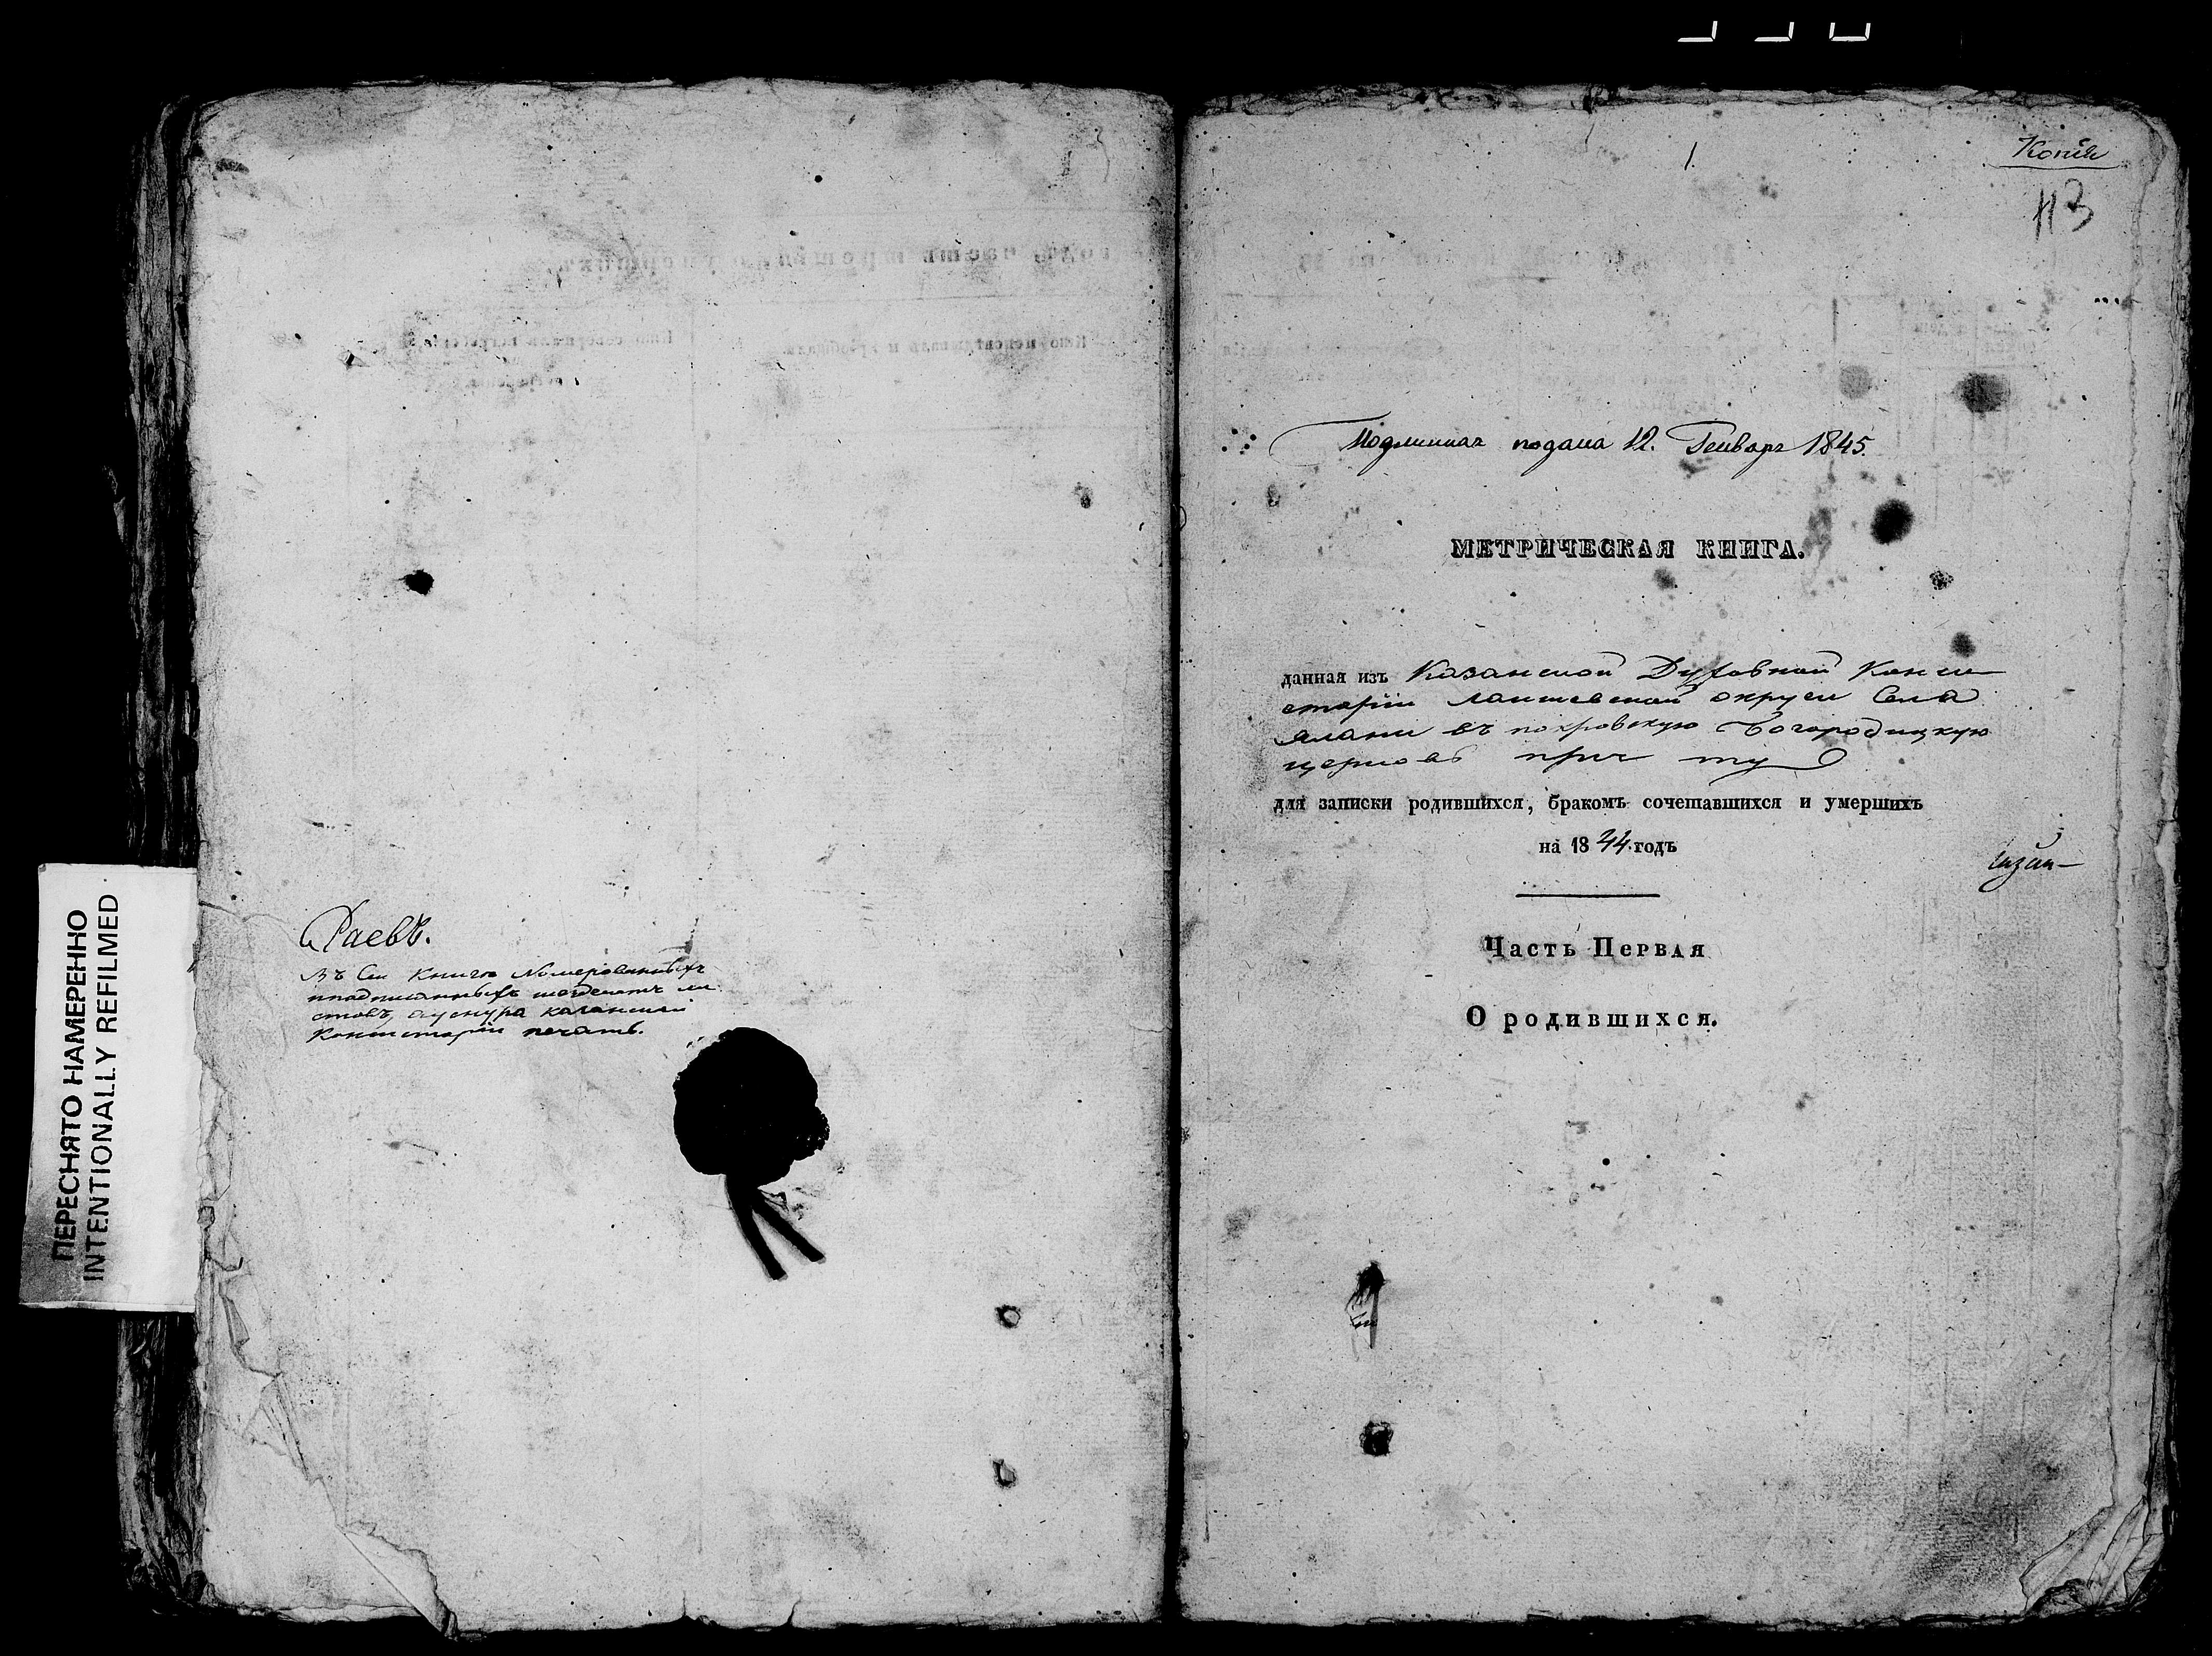 ПЕРЕСНЯТО НАМЕРЕННО
INTENTIONALLY REFILMED
Раевъ.
Въ сей книге номерованныхъ
листовъ, казанской
Консисторіи печать.
1
Копія
113
Подлинная подана 12. Генваря 1845.
МЕТРИЧЕСКАЯ КНИГА.
данная изъ Казанской Духовной Конси
сторіи Лаишевской округи Села
Алани въ покровскую Богородицкую
церковь прич ту
для записки родившихся, бракомъ сочетавшихся и умершихъ
на 1844.годъ
Часть Первая
О родившихся.